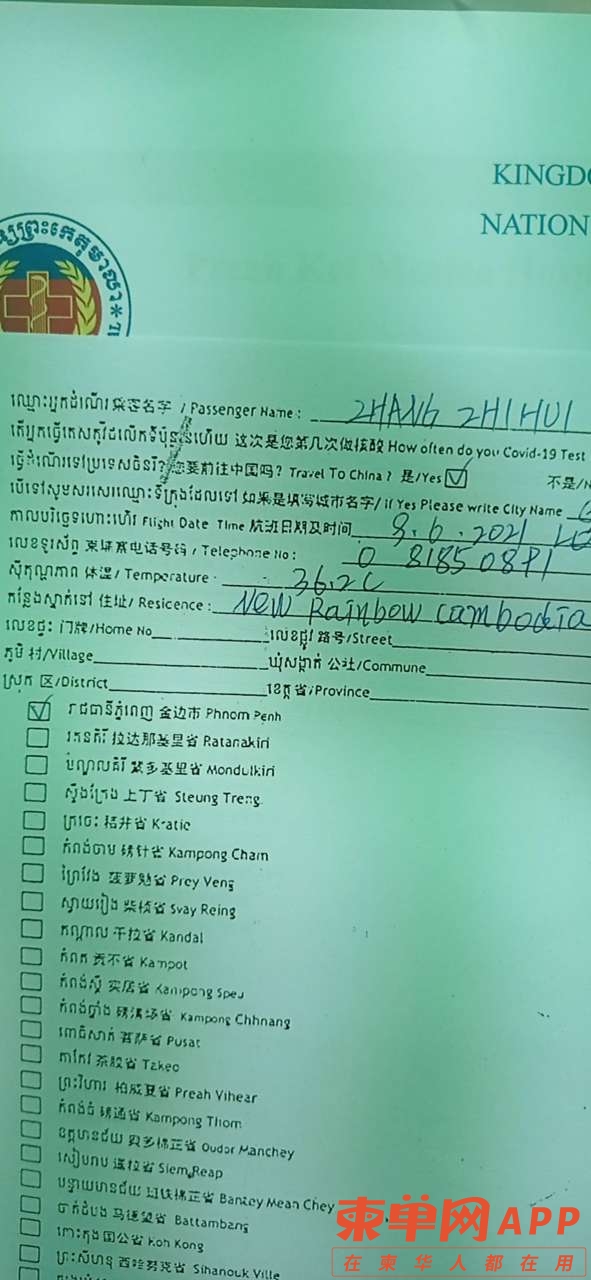 KINGDO
NATION
ឈ្មោះអ្នកដំណើរ 乘客名字 / Passenger Name : ZHANG ZHIHUI
តើអ្នកធ្វើតេសកូវីដលើកទីប៉ុន្មានហើយ 这次是您第几次做核酸 How often do you Covid-19 Test
ធ្វើដំណើរទៅប្រទេសចិនរឺ? 您要前往中国吗? Travel To China ? 是/Yes 不是/N
បើទៅសូមសរសេរឈ្មោះទីក្រុងដែលទៅ 如果是填写城市名字/ If Yes Please write City Name
កាលបរិច្ឆេទហោះហើរ Flight Date Time 航班日期及时间 9.6.2021
លេខទូរស័ព្ទ 柬埔寨电话号码 / Telephone No :
សីតុណ្ហភាព 体温 / Temperature : 36.2C
កន្លែងស្នាក់នៅ 住址/ Resicence : New Rainbow Cambodia
លេខផ្ទះ 门牌/Home No លេខផ្លូវ 路号/Street
ភូមិ 村/Village ឃុំសង្កាត់ 公社/Commune
ស្រុក 区/District ខេត្ត 省/Province
រាជធានីភ្នំពេញ 金边市 Phnom Penh
រតនគិរី 拉达那基里省 Ratanakiri
មណ្ឌលគិរី 蒙多基里省 Mondulkiri
ស្ទឹងត្រែង 上丁省 Steung Treng
ក្រចេះ 桔井省 Kratie
កំពង់ចាម 磅针省 Kampong Cham
ព្រៃវែង 菠萝勉省 Prey Veng
ស្វាយរៀង 柴桢省 Svay Reing
កណ្តាល 干拉省 Kandal
កំពត 贡不省 Kampot
កំពង់ស្ពឺ 实居省 Kampong Speu
កំពង់ឆ្នាំង 磅清扬省 Kampong Chhnang
ពោធិសាត់ 菩萨省 Pusat
តាកែវ 茶胶省 Takeo
ព្រះវិហារ 柏威夏省 Preah Vihear
កំពង់ធំ 磅通省 Kampong Thom
ឧត្តរមានជ័យ 奥多棉正省 Oudor Manchey
សៀមរាប 暹粒省 Siem Reap
បន្ទាយមានជ័យ 班铁棉正省 Bantey Mean Chey
បាត់ដំបង 马德望省 Battambang
កោះកុង 国公省 Koh Kong
ព្រះសីហនុ 西哈努克省 Sihanouk Ville
柬单网APP
在柬华人都在用